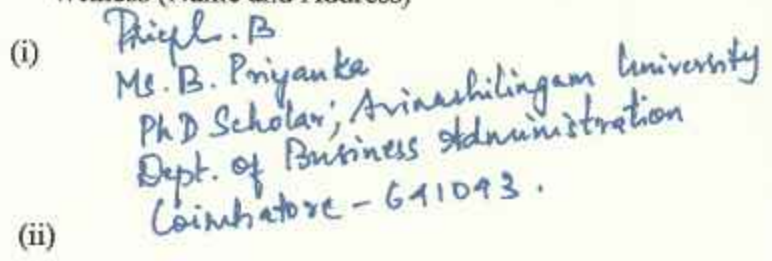 Witness (Name and Address)
(i)
B
Ms. B. Priyanka
PhD Scholar, Avinashilingam University
Dept. of Business Administration
Coimbatore - 641043.
(ii)